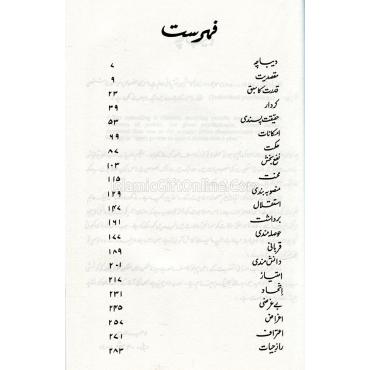 فہرست
دیباچہ ۷
مقصدیت ۹
قدرت کا سبق ۲۳
کردار ۳۹
حقیقت پسندی ۵۳
امکانات ۶۹
حکمت ۸۷
نفع بخشی ۱۰۳
محنت ۱۱۵
منصوبہ بندی ۱۲۹
استقلال ۱۴۷
برداشت ۱۶۱
حوصلہ مندی ۱۷۷
قربانی ۱۸۹
دانش مندی ۲۰۱
امتیاز ۲۱۷
اتحاد ۲۳۱
بے غرضی ۲۴۵
اعراض ۲۵۷
اعتراف ۲۷۱
راز حیات ۲۸۳
IslamicGiftOnline.Com